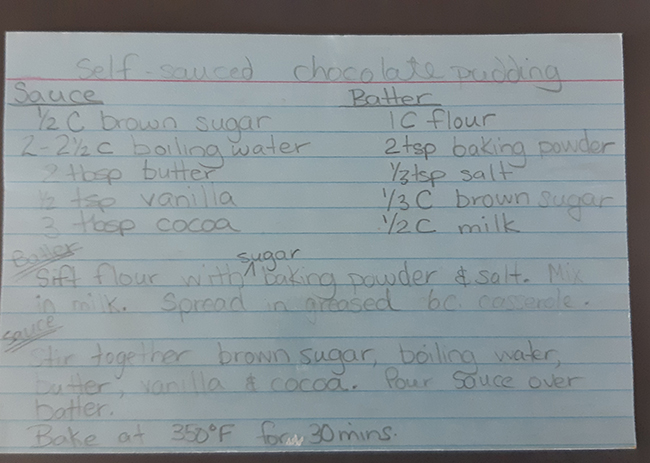 Self-sauced chocolate pudding
Sauce Batter
½ C brown sugar 1C flour
2-2½ C boiling water 2 tsp baking powder
2 tbsp butter ⅓ tsp salt
½ tsp vanilla ⅓ C brown sugar
3 tbsp cocoa ½ C milk
Batter
sugar
Sift flour with ^ baking powder & salt. Mix
in milk. Spread in greased 6c. casserole.
Sauce
Stir together brown sugar, boiling water,
butter, vanilla & cocoa. Pour sauce over
batter.
Bake at 350°F for 30mins.